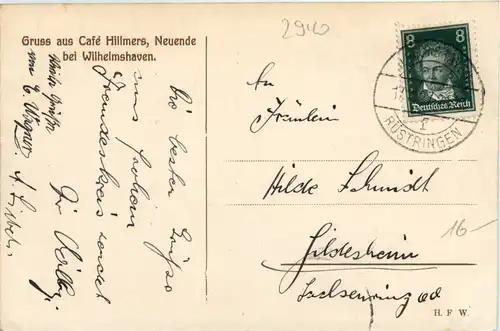 Gruss aus Café Hillmers, Neuende
bei Wilhelmshaven.
2940
8 8
Deutsches Reich
RÜSTRINGEN
An
Fräulein
Hilde Schmidt
Hildesheim
Sachsenring
16-
H. F. W.
Die besten Grüße
aus frohem
Freundeskreis sendet